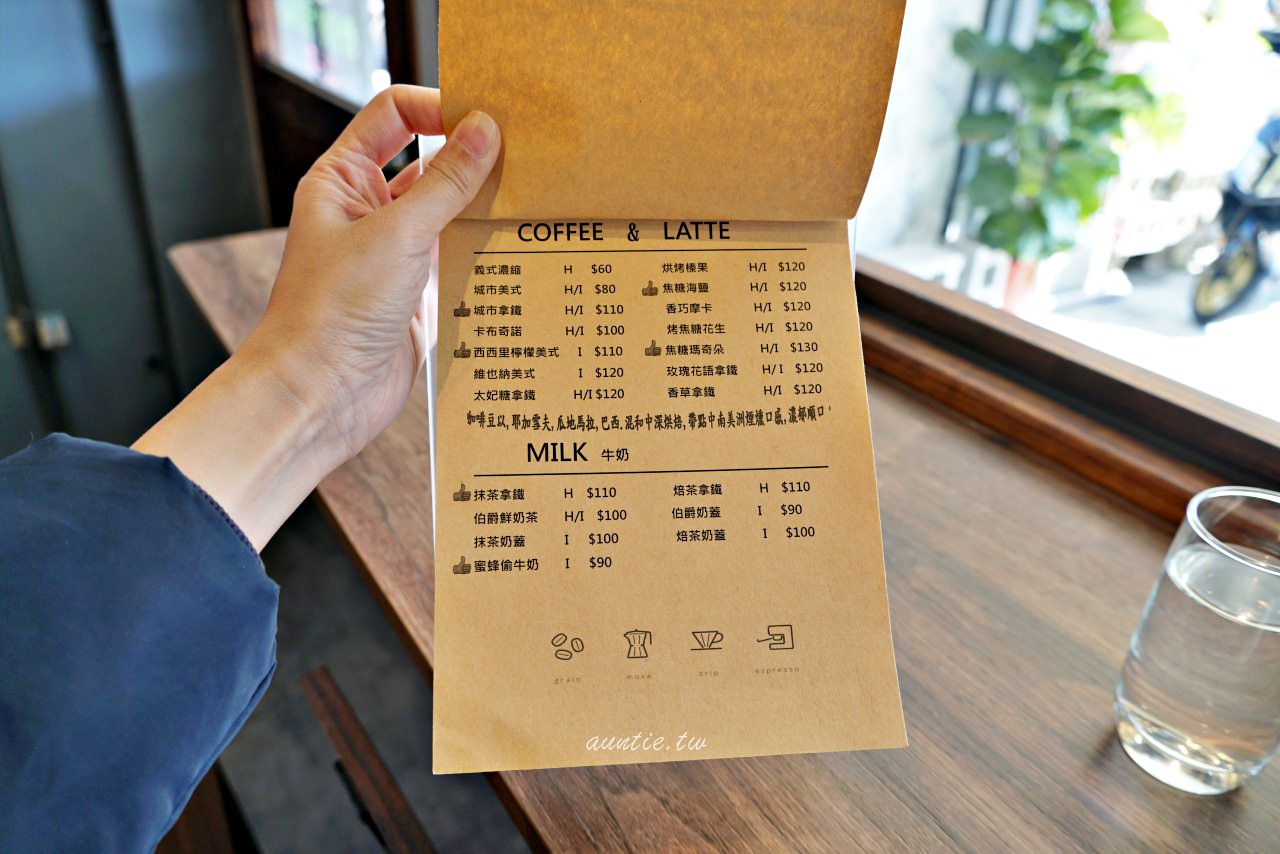 COFFEE & LATTE
義式濃縮 H $60 烘烤榛果 H/I $120
城市美式 H/I $80 焦糖海鹽 H/I $120
城市拿鐵 H/I $110 香巧摩卡 H/I $120
卡布奇諾 H/I $100 烤焦糖花生 H/I $120
西西里檸檬美式 I $110 焦糖瑪奇朵 H/I $130
維也納美式 I $120 玫瑰花語拿鐵 H/I $120
太妃糖拿鐵 H/I $120 香草拿鐵 H/I $120
咖啡豆以,耶加雪夫,瓜地馬拉,巴西.混和中深烘焙,帶點中南美洲煙燻口感,濃郁順口
MILK 牛奶
抹茶拿鐵 H $110 焙茶拿鐵 H $110
伯爵鮮奶茶 H/I $100 伯爵奶蓋 I $90
抹茶奶蓋 I $100 焙茶奶蓋 I $100
蜜蜂偷牛奶 I $90
grain moka drip espresso
auntie.tw